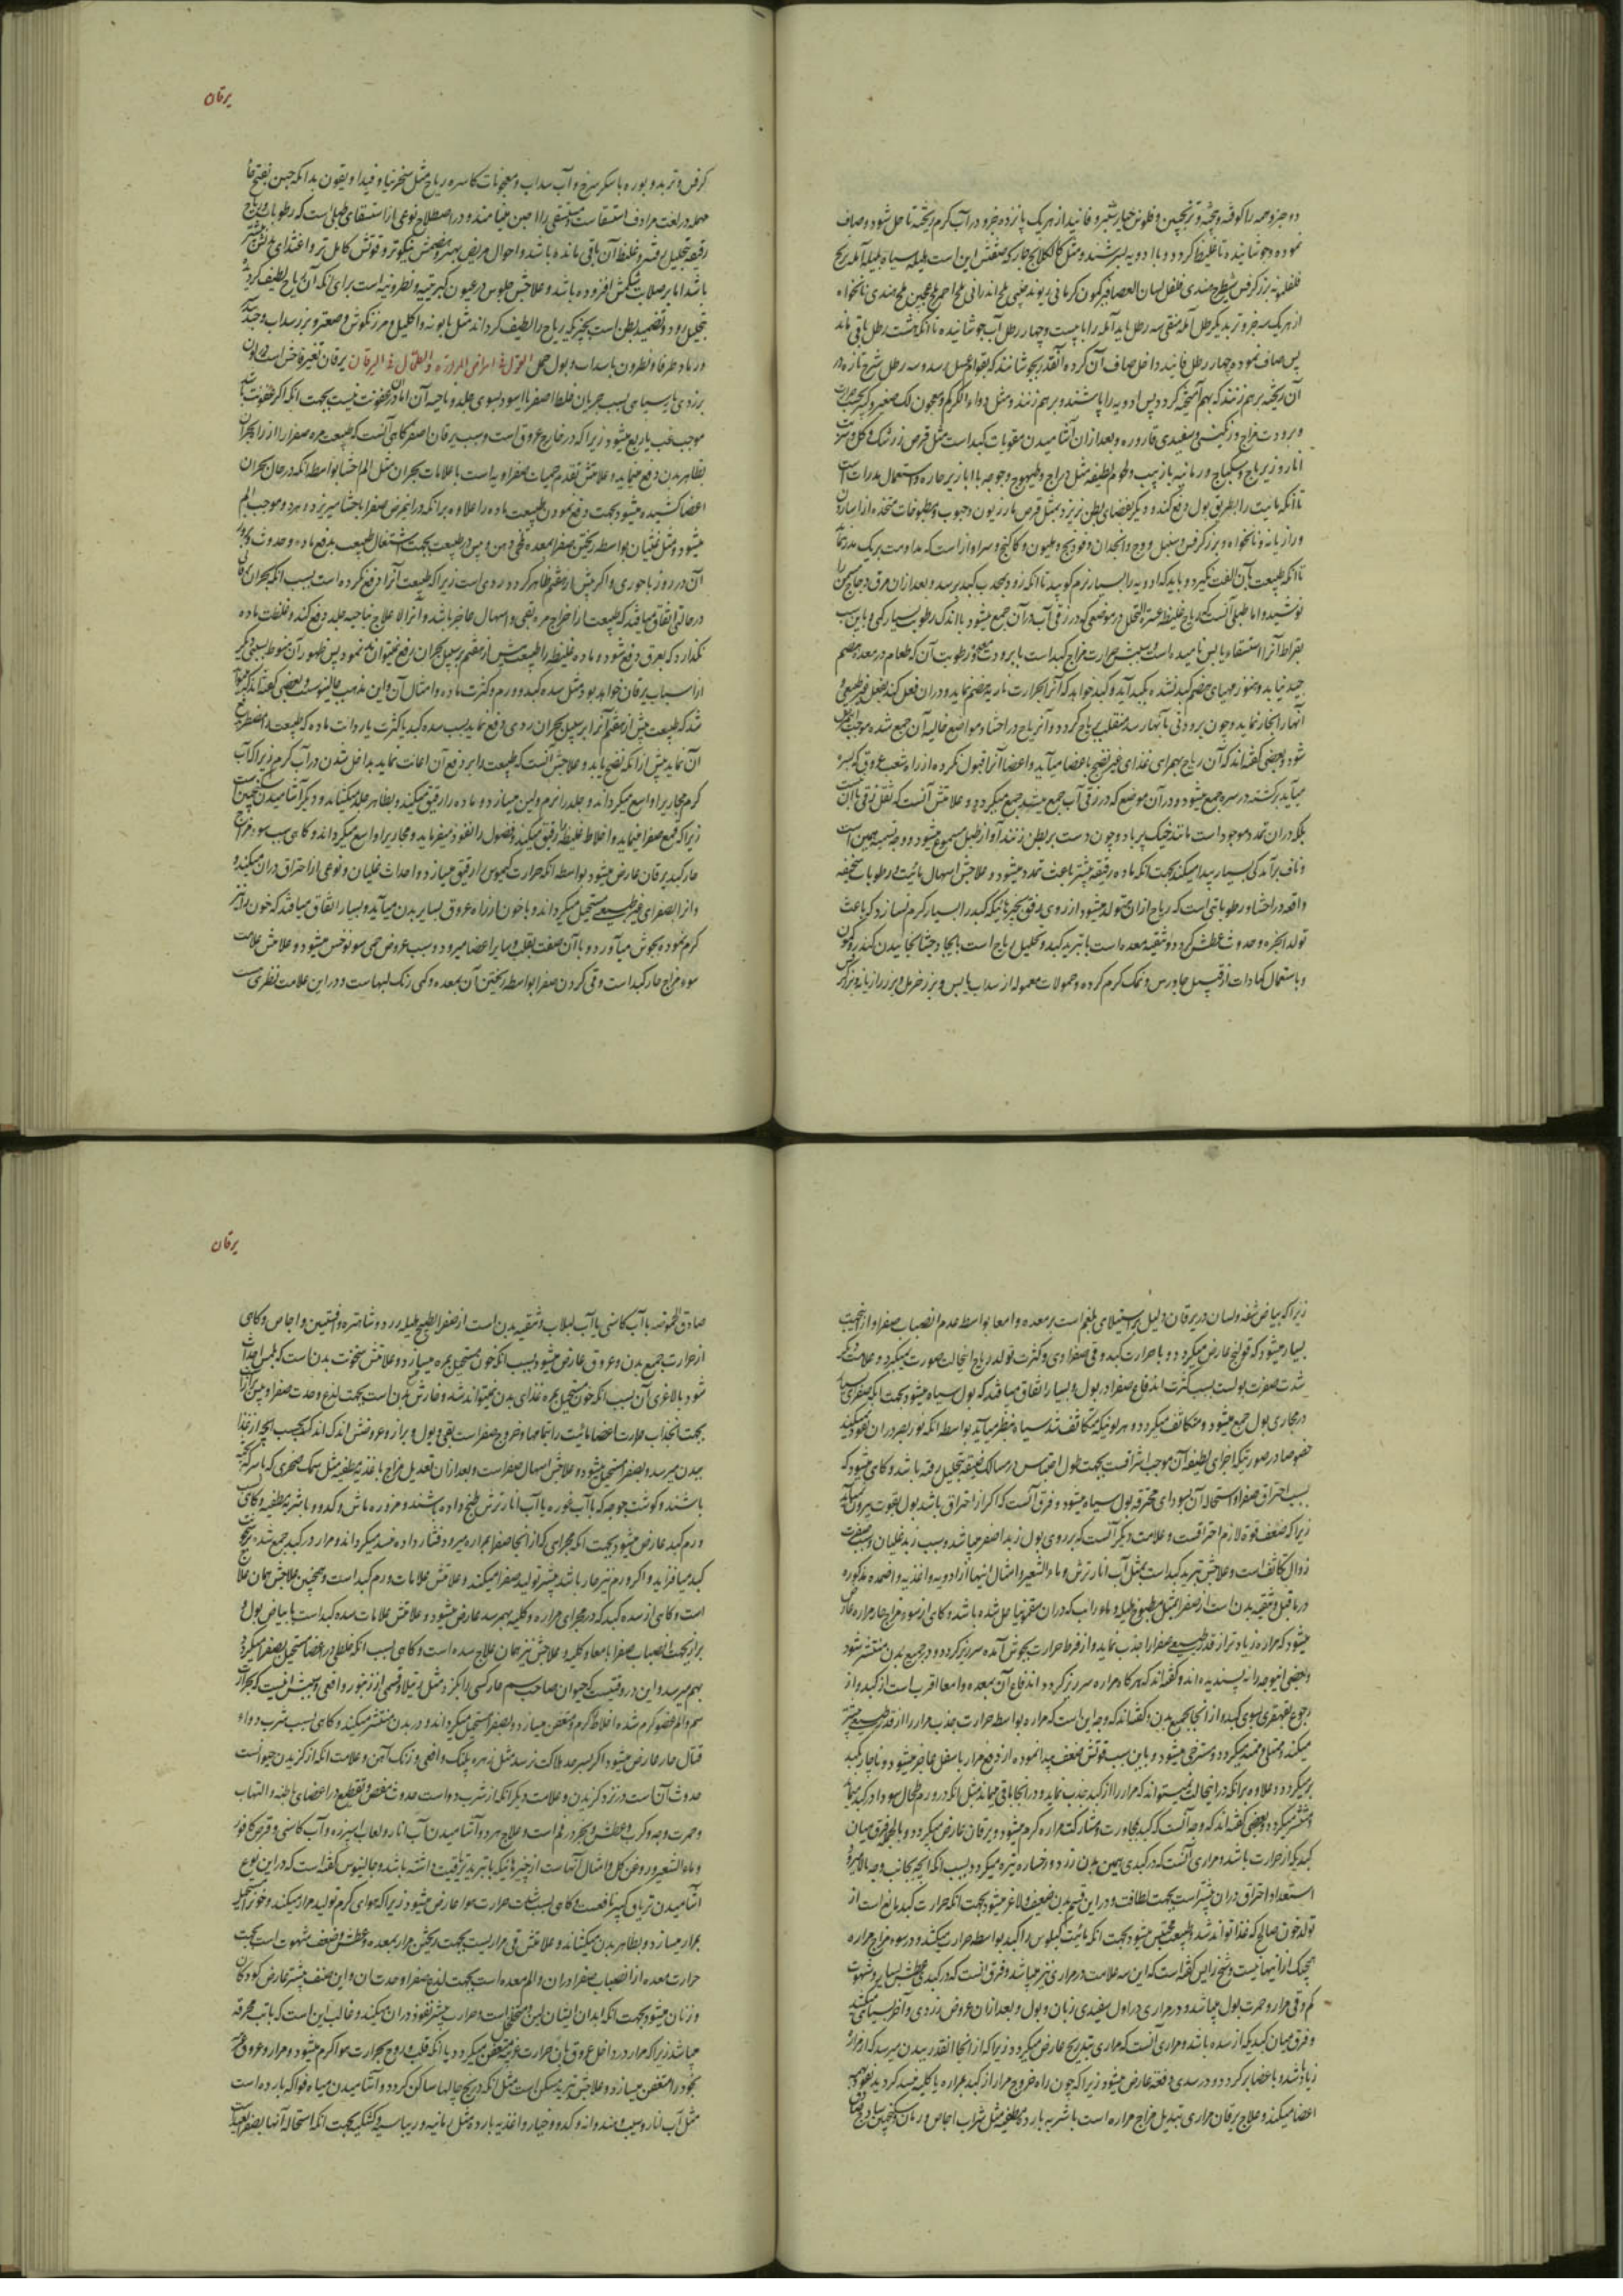 دو جزو همه را کوفته و بیخته و ترنجبین و فلوس خیارشنبر و فانید از هر یک پانزده جزو در آب گرم ریخته تا حل شود و صاف
نموده و جوشانیده تا غلیظ گردد و با ادویه بسرشند و مثل کلکلانج حار که صفتش این است هلیله سیاه بلیله آمله
از هر یک سه جزو تربد یک رطل آمله منقی سه رطل باید آمله را با بیست و چهار رطل آب جوشانیده تا آنکه هشت رطل باقی ماند
پس صاف نموده چهار رطل فانید داخل صاف آن کرده آنقدر بجوشانند که بقوام عسل رسد و سه رطل شیرج تازه در
آن ریخته برهم زنند که بهم آمیخته گردد پس ادویه را پاشند و برهم زنند و مثل دواء الکرکم و معجون لک صغیر و کبیر
و برودت مزاج و رنگینی و سفیدی قاروره و بعد از آن آشامیدن مقویات کبد است مثل قرص زرشک و گل و شربت
انار و زیرباج و سکباج و رمانیه با زبیب و لحوم لطیفه مثل دراج و طیهوج و جوجه با ابازیر حاره و استعمال مدرات است
تا آنکه مائیت را بطریق بول دفع کند و دیگر بفضای بطن نریزد مثل قرص مازریون و حبوب و مطبوخات متخذه از اسارون
و رازیانه و نانخواه و بزر کرفس و سنبل و وج و انجدان و فودنج و هلیون و کاکنج
تا آنکه طبیعت بآن الفت نگیرد و باید که ادویه را بسیار نرم کوبید تا آنکه زود بمحدب کبد برسد و بعد از آن مرق دجاج مسن را
نوشید و اما طبلی آنست که ریاح غلیظه عسرة التحلل در موضعی که در زقی آب در آن جمع میشود با اندک رطوبت بسیار کمی و باین سبب
بقراط آنرا استسقاء یابس نامیده است و سببش حرارت مزاج کبد است با برودت معده و رطوبت آن که طعام در معده هضم
جید نیابد و هنوز مهیای هضم کبد نشده بکبد آید و کبد خواهد که آنرا بحرارت ناریه هضم نماید و در آن فعل کند بفعل غیر طبیعی
شود و بعضی گفته‌اند که آن ریاح بهمراهی غذای غیر نضج باعضا میآید و اعضا آنرا قبول نکرده از راه شعب عروق که بسره
میآید برگشته در سره جمع میشود و در آن موضع که در زقی آب جمع میشد جمع میگردد و علامتش آنست که ثقل زقی با آن نیست
بلکه در آن تمدد موجود است مانند خیک پر باد و چون دست بر بطن زنند آواز طبل مسموع میشود و وجه تسمیه همین است
و ناف برآمدگی بسیار پیدا میکند بجهت آنکه ماده رقیقه بیشتر باعث تمدد میشود و علاجش اسهال مائیت و رطوبات سخیفه
واقعه در احشا و رطوباتی است که ریاح از آن متولد میشود از روی رفق بچیزهائیکه کبد را بسیار گرم نسازد که باعث
تولد ابخره و حدوث عطش گردد و تنقیه معده است با تبرید کبد و تحلیل ریاح است
و باستعمال کمادات از قبیل جاورس و نمک گرم کرده و حمولات معموله از سداب یابس و بزر خرمل و بزر رازیانه و بزر
یرقان
کرفس و تربد و بوره با سکر سرخ و آب سداب و معجونات کاسره ریاح مثل سنجرنیا و فنداویقون بدانکه حبن بفتح حا
مهمله در لغت مرادف استسقاست و مستسقی را احبن مینامند و در اصطلاح نوعی از استسقای طبلی است که رطوبات
رقیقه بتحلیل رفته و غلیظ آن باقی مانده باشد و احوال مریض بهتر و هضمش نیکوتر و قوتش کامل‌تر و اغتذای
باشد اما بر صلابت شکمش افزوده باشد و علاجش جلوس در عیون کبریتیه و نطرونیه است برای آنکه آن ریاح لطیف گردد
بتحلیل رود و تضمید بطن است بچیزیکه ریاح را لطیف گرداند مثل بابونه و اکلیل و مرزنگوش و صعتر و بزر سداب
و رماد طرفا و نطرون با سداب و بول القول فی امراض المرارة و الطحال فی الیرقان یرقان تغیر فاحش است در لون
بزردی یا سیاهی بسبب جریان خلط اصفر یا اسود بسوی جلد و ناحیه آن اما در آن عفونت نیست بجهت آنکه اگر عفونت باشد
موجب غب یا ربع میشود زیرا که در خارج عروق است و سبب یرقان اصفر گاهی آنست که طبیعت مره صفرا را از راه بحران
بظاهر بدن دفع مینماید و علامتش تقدم حمیات صفراویه است با علامات بحران مثل الم احشا بواسطه آنکه در حال بحران
اعضا کشیده میشود بجهت دفع نمودن طبیعت ماده را علاوه بر آنکه در این مرض صفرا باحشا میریزد و موجب الم
میشود و مثل غثیان بواسطه ریختن صفرا بمعده
آن در روز باحوری و اگر پیش از هفتم ظاهر گردد ردی است زیرا که طبیعت آنرا دفع نکرده است بسبب آنکه بحران
در حالتی اتفاق میافتد که طبیعت از اخراج مره بقی و اسهال عاجز باشد و آنرا لاعلاج بناحیه جلد دفع کند و غلظت ماده
نگذارد که بعرق دفع شود و ماده غلیظه را طبیعت پیش از هفتم بر سبیل بحران دفع نمیتواند نمود پس ظهور آن منوط بسببی دیگر
از اسباب یرقان خواهد بود مثل سده کبد و ورم و کثرت ماده و امثال آن و این مذهب جالینوس است
شد که طبیعت پیش از هفتم آنرا بر سبیل بحران ردی دفع نماید بسبب سده کبد یا کثرت یا ردائت ماده که طبیعت را مضطر بدفع
آن نماید پیش از آنکه نضج یابد و علاجش آنست که طبیعت را بر دفع آن اعانت نماید بداخل شدن در آب گرم زیرا که آب
گرم مجاری را واسع میگرداند و جلد را نرم و لین میسازد و ماده را رقیق میکند و بظاهر جلد میکشاند و دیگر آشامیدن سکنجبین است
زیرا که قمع صفرا مینماید و اخلاط غلیظه را رقیق میکند و فضول را نفوذ میفرماید و مجاری را واسع میگرداند و گاهی بسبب سوء مزاج
حار کبد یرقان عارض میشود بواسطه آنکه حرارت کیموس را رقیق میسازد و احداث غلیان و نوعی از احتراق در آن میکند
و آنرا بصفرای غیر طبیعی مستحیل میگرداند و با خون از راه عروق بسایر بدن میآید و بسیار اتفاق میافتد که خون را نیز
گرم نموده بجوش میآورد و با آن صفت بقلب و سایر اعضا میرود و سبب عروض حمی سونوخس میشود و علامتش علامت
سوء مزاج حار کبد است و قی کردن صفرا بواسطه ریختن آن بمعده و کمی رنگ لبهاست و در این علامت نظری است
زیرا که بیاض شفه و لسان در یرقان دلیل بر استیلای بلغم است بر معده و امعا بواسطه عدم انصباب صفرا و از این جهت
بسیار میشود که قولنج عارض میگردد و با حرارت کبد و قی صفراوی و کثرت تولد ریاح این حالت صورت نمیگیرد و علامت دیگر
شدت صفرت بول است بسبب کثرت اندفاع صفرا در بول و بسیار اتفاق میافتد که بول سیاه میشود بجهت آنکه صفرای بسیار
در مجاری بول جمع میشود و متکاثف میگردد و هر لونیکه متکاثف شد سیاه بنظر میآید بواسطه آنکه نور بصر در آن نفوذ نمیکند
خصوصا در صورتیکه اجزای لطیفه آن موجب اشراقست بجهت طول احتباس در مسالک ضیقه بتحلیل رفته باشد و گاهی میشود که
بسبب احتراق صفرا و استحاله آن بسودای محترقه بول سیاه میشود و فرق آنست که اگر از احتراق باشد بول بقوت بیرون نمیآید
زیرا که ضعف قوة لازم احتراقست و علامت دیگر آنست که بر روی بول زبد اصفر میباشد و سبب زبد غلیان و سبب صفرت
زوال تکاثف است و علاجش تبرید کبد است بمثل آب انار ترش و ماء الشعیر و امثال اینها از ادویه و اغذیه و اضمده مذکوره
در ما قبل و تنقیه بدن است از صفرا بمثل مطبوخ هلیله و ماء رائب که در آن سقمونیا حل شده باشد و گاهی از سوء مزاج حار مراره عارض
میشود که مراره زیاده‌تر از قدر طبیعی صفرا را جذب نماید و از فرط حرارت بجوش آمده سرریز گردد و در جمیع بدن منتشر شود
و بعضی این وجه را نپسندیده‌اند و گفته‌اند که هرگاه مراره سرریز گردد اندفاع آن بمعده و امعا اقرب است از کبد و از
رجوع بقهقری بسوی کبد و از آنجا بجمیع بدن و گفته‌اند که وجه این است که مراره بواسطه حرارت جذب مرار را از قدر طبیعی بیشتر
میکند و ممتلی و ممتد میگردد و مسترخی میشود و باین سبب قوتش ضعف پیدا نموده از دفع مرار باسفل عاجز میشود و ناچار بکبد
برمیگردد و علاوه بر آنکه در این حالت نمیتواند که مرار را از کبد جذب نماید و در آنجا باقی میماند مثل آنکه در ورم طحال سودا در کبد میماند
و منتشر میگردد و بعضی گفته‌اند که وجه آنست که کبد بمجاورت و مشارکت مراره گرم میشود و یرقان عارض میگردد و بالجمله فرق میان
کبدی که از حرارت باشد و مراری آنست که در کبدی همین بدن زرد و رخساره تیره میگردد بسبب آنکه ابخره بجانب وجه بالا میرود
استعداد احتراق در آن بیشتر است بجهت لطافت و در این قسم بدن ضعیف و لاغر میشود بجهت آنکه حرارت کبد مانع است از
تولد خون صالح که غذا تواند شد و طبیعت محتبس میشود بجهت آنکه مائیت کیلوس را کبد بواسطه حرارت میکشد و در سوء مزاج مراره
هیچیک از اینها نیست و شیخ رئیس گفته است که این سه علامت در مراری نیز میباشد و فرق آنست که در کبدی عطش بسیار و شهوت
کم و قی مرار و حمرت بول میباشد و در مراری در اول سفیدی زبان و بول و بعد از آن عروض زردی و آخر بسیاهی میکشد
و فرق میان کبدی که از سده باشد و مراری آنست که مراری بتدریج عارض میگردد زیرا که از آنجا آنقدر ببدن میرسد که از مراره
زیاد شده باعضا برگردد و در سدی دفعة عارض میشود زیرا که چون راه خروج مرار از کبد بمراره بالکلیه مسدود گردید نفوذ
اعضا میکند و علاج یرقان مراری تبدیل مزاج مراره است باشربه بارده مطفیه مثل شراب اجاص و رمان و سکنجبین ساده
یرقان
صادق الحموضه با آب کاسنی یا آب لبلاب و تنقیه بدن است از صفرا بطبیخ هلیله زرد و شاهتره و افسنتین و اجاص و گاهی
از حرارت جمیع بدن و عروق عارض میشود بسبب آنکه خون را مستحیل بمره میسازد و علامتش سخونت بدن است که بلمس احساس
شود با لاغری آن بسبب آنکه خون مستحیل بمره غذای بدن نمیتواند شد و خارش بدن است بجهت لذع و حدت صفرا و یبس براز
بجهت انجذاب حرارت اعضا مائیت را بتمامها و خروج صفراست بقی و بول و براز و عروضش اندک اندک بحسب آنچه از غذا
ببدن میرسد و بصفرا مستحیل میشود و علاجش اسهال صفراست و بعد از آن تعدیل مزاج باغذیه مطفیه مثل سمک صخری که با سرکه پخته
باشند و گوشت جوجه که با آب غوره یا آب انار ترش طبخ داده باشند و مزوره ماش و کدو و باشربه مطفیه و گاهی
ورم کبد عارض میشود بجهت آنکه مجرائی که از آنجا صفرا بمراره میرود فشار داده منسد میگرداند و مرار در کبد جمع شده
کبد میافزاید و اگر ورم نیز حار باشد بیشتر تولید صفرا میکند و علامتش علامات ورم کبد است و همچنین علاجش همان علاج
است و گاهی از سده کبد که در مجرای مراره و کلیه بهم رسد عارض میشود و علامتش علامات سده کبد است با بیاض بول و
براز بجهت عدم انصباب صفرا بامعاء و کلیه و علاجش نیز همان علاج سده است و گاهی بسبب آنکه خلطی در اعضا مستحیل بصفرا میگردد
بهم میرسد و این در وقتیست که حیوان صاحب سم حار کسی را بگزد مثل رتیلا و قسمی از زنبور و افعی و سببش اینست که حرارت
سم و الم عضو گرم شده اخلاط گرم و متعفن میسازد و بصفرا مستحیل میگرداند و در بدن منتشر میکند و گاهی بسبب شرب دواء
قتال حار عارض میشود اگر بسرحد هلاکت نرسد مثل زهره پلنگ و افعی و زنگ آهن و علامت آنکه از گزیدن حیوانست
حدوث آن است در نزد گزیدن و علامت دیگر آنکه از شرب دواست حدوث مغص و تقطیع در اعضای باطنه و التهاب
و حمرت وجه و کرب و عطش و بخر در فم است و علاج هر دو آشامیدن آب انار و لعاب اسپرزه و آب کاسنی و قرص کافور
و ماء الشعیر و روغن گل و امثال آنهاست از چیزهائیکه با تبرید تریاقیت داشته باشد و جالینوس گفته است که در این نوع
آشامیدن تریاق کبیر نافعست و گاهی بسبب شدت حرارت هوا عارض میشود زیرا که هوای گرم تولید مرار میکند و خون را مستحیل
بمرار میسازد و بظاهر بدن میکشاند و علامتش قی مراریست بجهت ریختن مرار بمعده و عطش و ضعف شهوت است بجهت
حرارت معده از انصباب صفرا در آن و الم معده است بجهت لذع صفرا و حدت آن و این صنف بیشتر عارض کودکان
و زنان میشود بجهت آنکه ابدان ایشان لین و متخلخل است و حرارت بیشتر نفوذ در آن میکند و غالب این است که با تب محرقه
میباشد زیرا که مرار در داخل عروق باین حرارت غریبه متعفن میگردد یا آنکه قلب و روح بحرارت هوا گرم میشود و مرار و عروق
خود را متعفن میسازد و علاجش تبرید مسکن است مثل آنکه در یخ‌چالها ساکن گردد و آشامیدن میاه فواکه بارده است
مثل آب انار و سیب و هندوانه و کدو و خیار و اغذیه بارده مثل رمانیه و ریباسیه و کشکیه بجهت آنکه استحاله آنها بصفرا بعید است